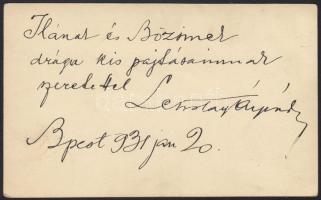 Ilának és Bözsinek
drága kis pajtásaimnak
szeretettel
Bpest 931 jan 20.